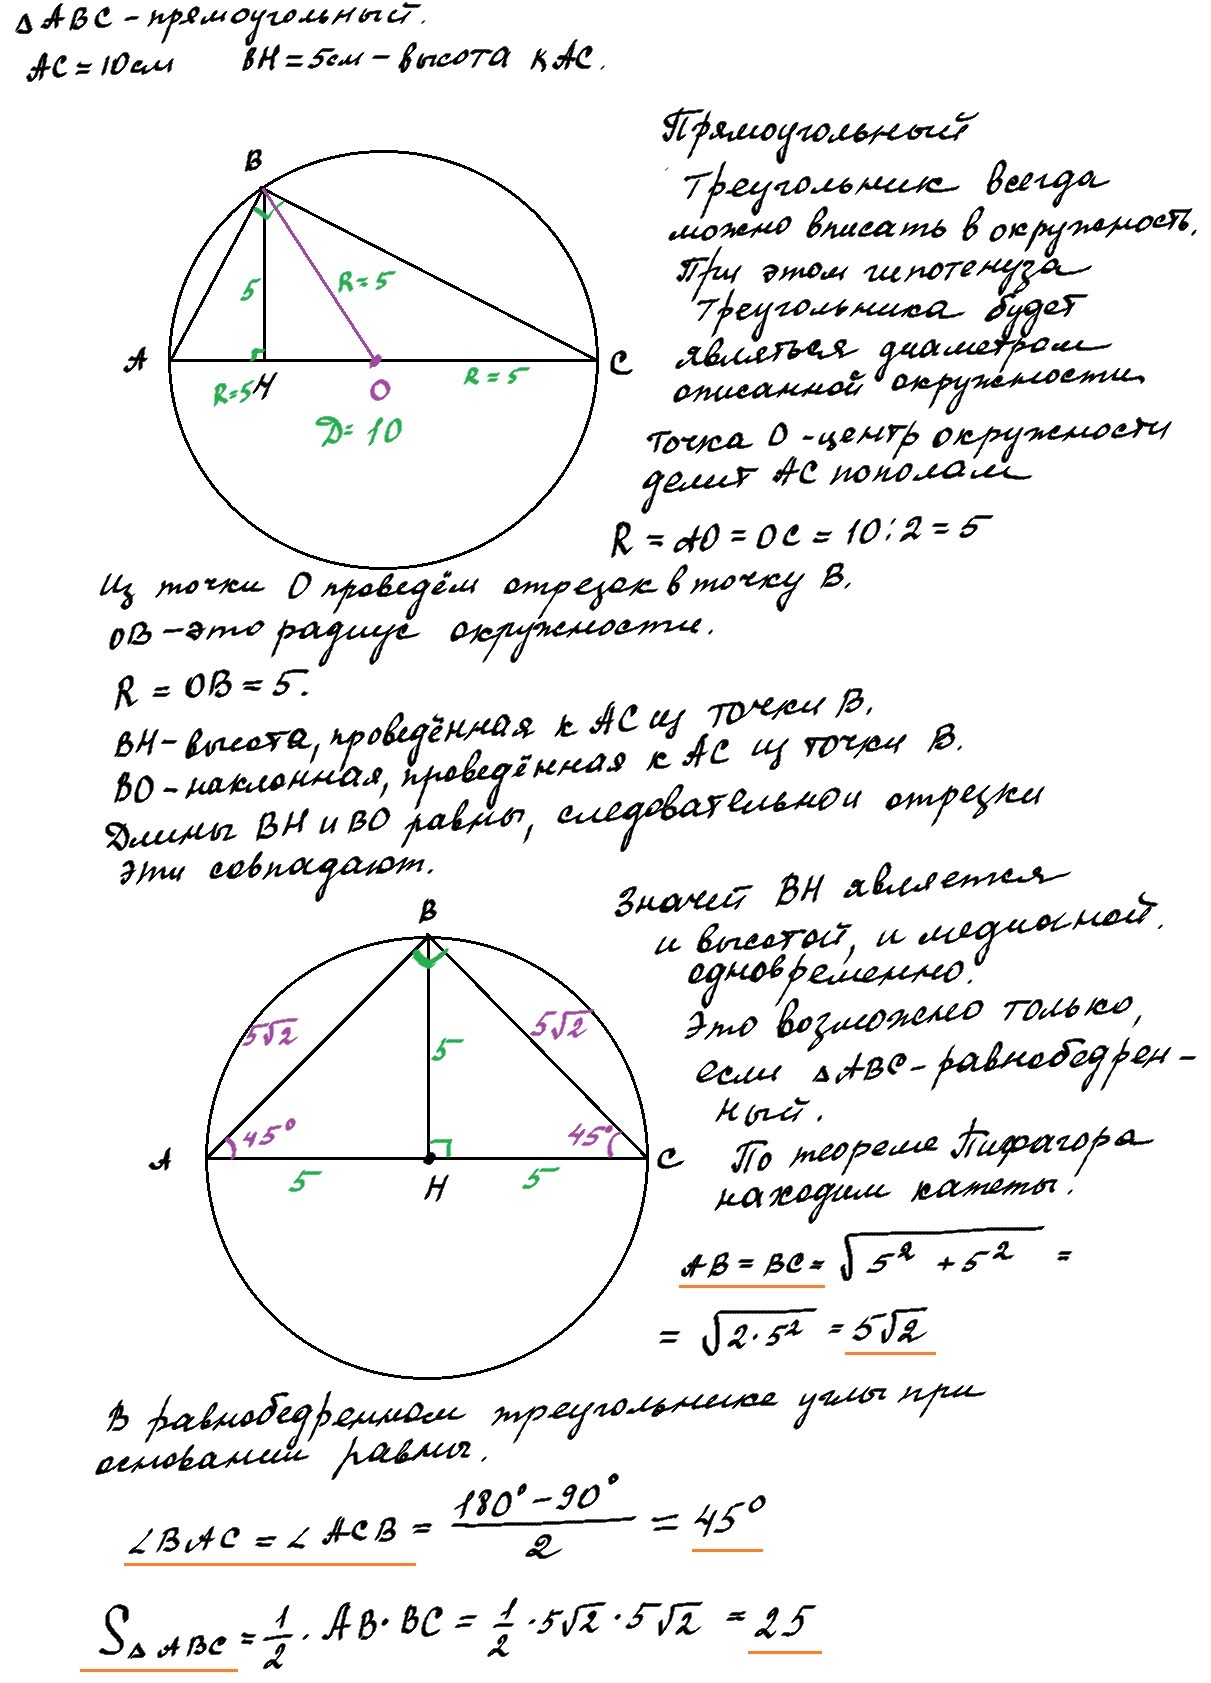 △ABC - прямоугольный.
AC = 10 см BH = 5 см - высота к AC.
Прямоугольный
треугольник всегда
можно вписать в окружность.
При этом гипотенуза
треугольника будет
являться диаметром
описанной окружности
B
5
R = 5
A
H
R=5
O
R = 5
C
D = 10
Точка O - центр окружности
делит AC пополам
R = AO = OC = 10:2 = 5
Из точки O проведём отрезок в точку B.
OB - это радиус окружности.
R = OB = 5.
BH - высота, проведённая к AC из точки B.
BO - наклонная, проведённая к AC из точки B.
Длины BH и BO равны, следовательно и отрезки
эти совпадают.
Значит BH является
и высотой, и медианой
одновременно.
Это возможно только,
если △ABC - равнобедрен-
ный.
По теореме Пифагора
находим катеты.
B
5√2
5√2
5
45°
45°
A
5
H
5
C
AB = BC = √5² + 5² =
= √2·5² = 5√2
В равнобедренном треугольнике углы при
основании равны.
∠BAC = ∠ACB = (180° - 90°)/2 = 45°
S△ABC = 1/2 · AB · BC = 1/2 · 5√2 · 5√2 = 25